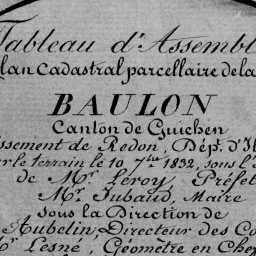 Tableau d'Assembl
lan Cadastral parcellaire de la
BAULON
Canton de Guichen
issement de Redon, Dép.t d'Il
r le terrain le 10 7bre 1832, sous l'
de Mr. Leroy, Préfet
Mr. Jubaud, Maire
sous la Direction de
Aubelin, Directeur des Co
Mr Lesné, Géomètre en Chef